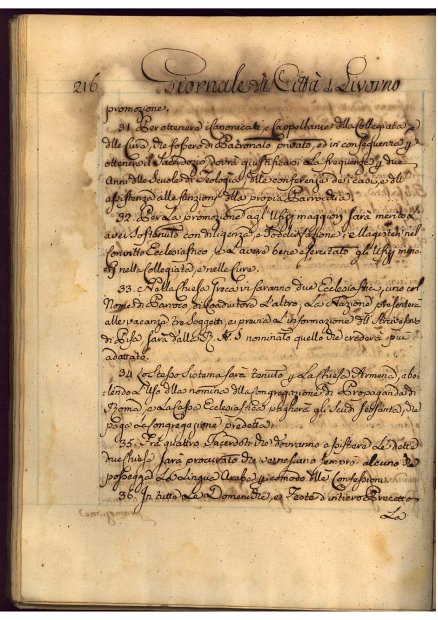 216 Giornale della Città di Livorno
promozione.
31. Per ottenere i Canonicati, e Cappellanie della Collegiata, e
delle Cura, che fossero di Padronato privato, ed in conseguenza p
ottenere il Sacerdozio dovrà giustificarsi la frequenza p due
Anni delle Scuole di Teologia, delle conferenze dei casi, e di
assistenza alle funzioni della propria Parrocchia.
32. Per la promozione agl'Ufizj maggiori sarà merito l'
aver sostenuto con diligenza, e soddisfazione i Magisteri nel
convitto Ecclesiastico, e l'avere bene esercitato gli Ufizj mino-
ri nella Collegiata, e nelle Cure.
33. Nella Chiesa Greca vi saranno due Ecclesiastici, uno col
Nome di Parroco, di Coadiutore l'altro, La Nazione presenterà
alle vacanze tre Soggetti, e previa l'informazione dell'Arcivescovo
di Pisa, sarà dall' A. S. nominato quello che crederà più
adattato.
34. Lo stesso Sistema sarà tenuto p la Chiesa Armena, abo-
lendo l'Uso della nomina della Congregazione di Propaganda di
Roma, e la Cassa Ecclesiastica pagherà gli Scudi sessanta, che
paga la Congregazione predetta.
35. Frà quattro Sacerdoti che dovranno assistere le dette
due chiese sarà procurato che vi resi sempre alcuno che
possegga la Lingua Araba p comodo delle Confessioni.
36. In tutte le Domeniche, e Feste d'intiero Precetto
La